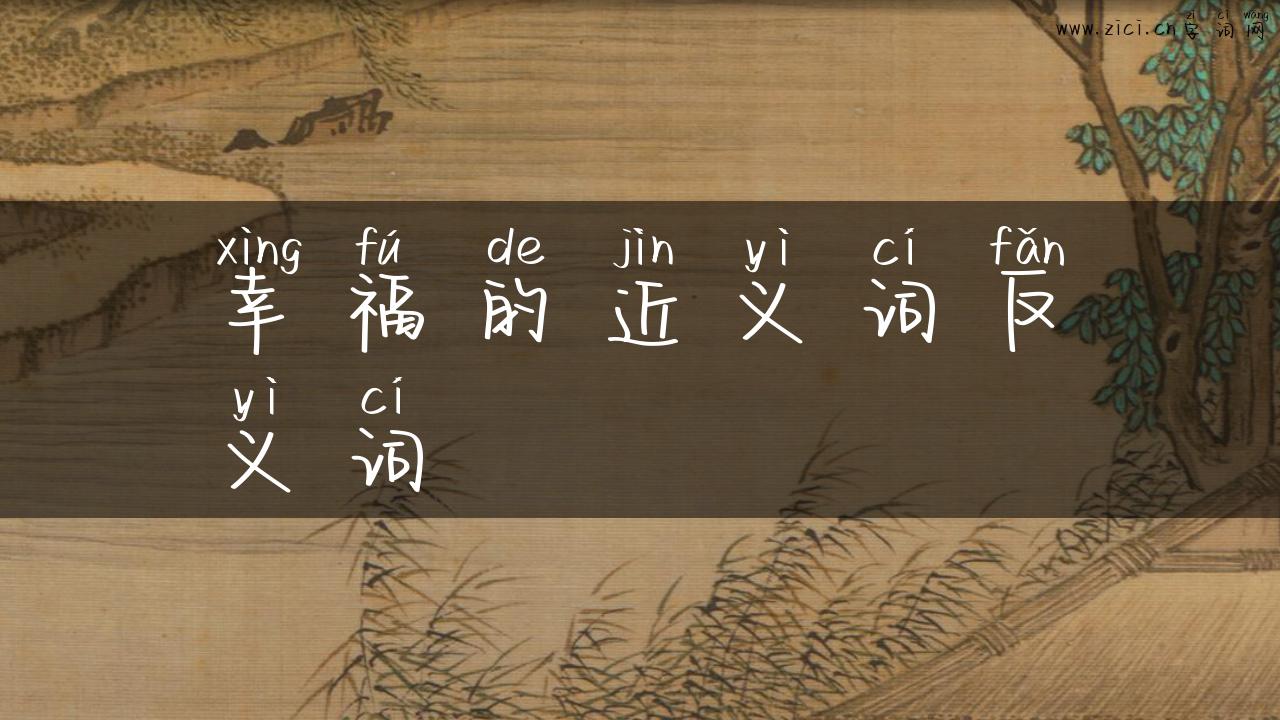 zì cí wǎng
www.zici.cn字词网
xìng fú de jìn yì cí fǎn
幸福的近义词反
yì cí
义词